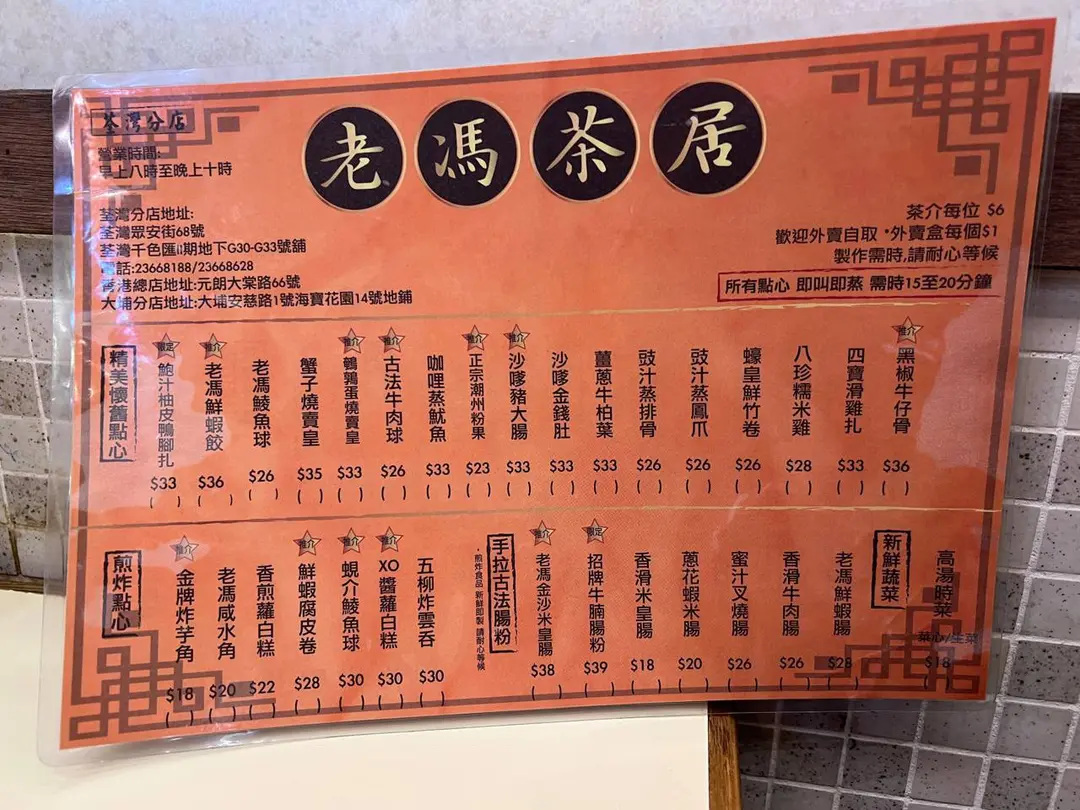 老馮茶居
荃灣分店
營業時間:
早上八時至晚上十時
荃灣分店地址:
荃灣眾安街68號
荃灣千色匯II期地下G30-G33號舖
電話:23668188/23668628
香港總店地址:元朗大棠路66號
大埔分店地址:大埔安慈路1號海寶花園14號地舖
茶介每位 $6
歡迎外賣自取 *外賣盒每個$1
製作需時,請耐心等候
所有點心 即叫即蒸 需時15至20分鐘
精美懷舊點心
限定 鮑汁柚皮鴨腳扎 $33 ( )
推介 老馮鮮蝦餃 $36 ( )
老馮鯪魚球 $26 ( )
蟹子燒賣皇 $35 ( )
推介 鵪鶉蛋燒賣皇 $33 ( )
推介 古法牛肉球 $26 ( )
咖哩蒸魷魚 $33 ( )
推介 正宗潮州粉果 $23 ( )
推介 沙嗲豬大腸 $33 ( )
沙嗲金錢肚 $33 ( )
薑蔥牛柏葉 $33 ( )
豉汁蒸排骨 $26 ( )
豉汁蒸鳳爪 $26 ( )
蠔皇鮮竹卷 $26 ( )
八珍糯米雞 $28 ( )
四寶滑雞扎 $33 ( )
推介 黑椒牛仔骨 $36 ( )
煎炸點心
推介 金牌炸芋角 $18 ( )
老馮咸水角 $20 ( )
香煎蘿白糕 $22 ( )
推介 鮮蝦腐皮卷 $28 ( )
推介 蜆介鯪魚球 $30 ( )
推介 XO醬蘿白糕 $30 ( )
五柳炸雲吞 $30 ( )
*煎炸食品 新鮮即製 請耐心等候
手拉古法腸粉
推介 老馮金沙米皇腸 $38 ( )
限定 招牌牛腩腸粉 $39 ( )
香滑米皇腸 $18 ( )
蔥花蝦米腸 $20 ( )
蜜汁叉燒腸 $26 ( )
香滑牛肉腸 $26 ( )
老馮鮮蝦腸 $28 ( )
新鮮蔬菜
高湯時菜 菜心/生菜 $18 ( )